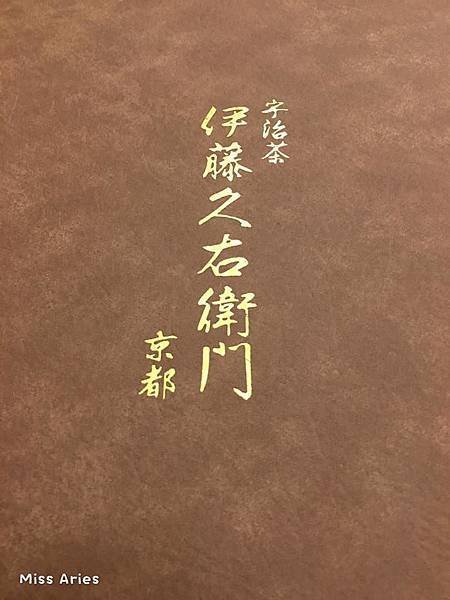 宇治茶
伊藤久右衛門
京都
Miss Aries